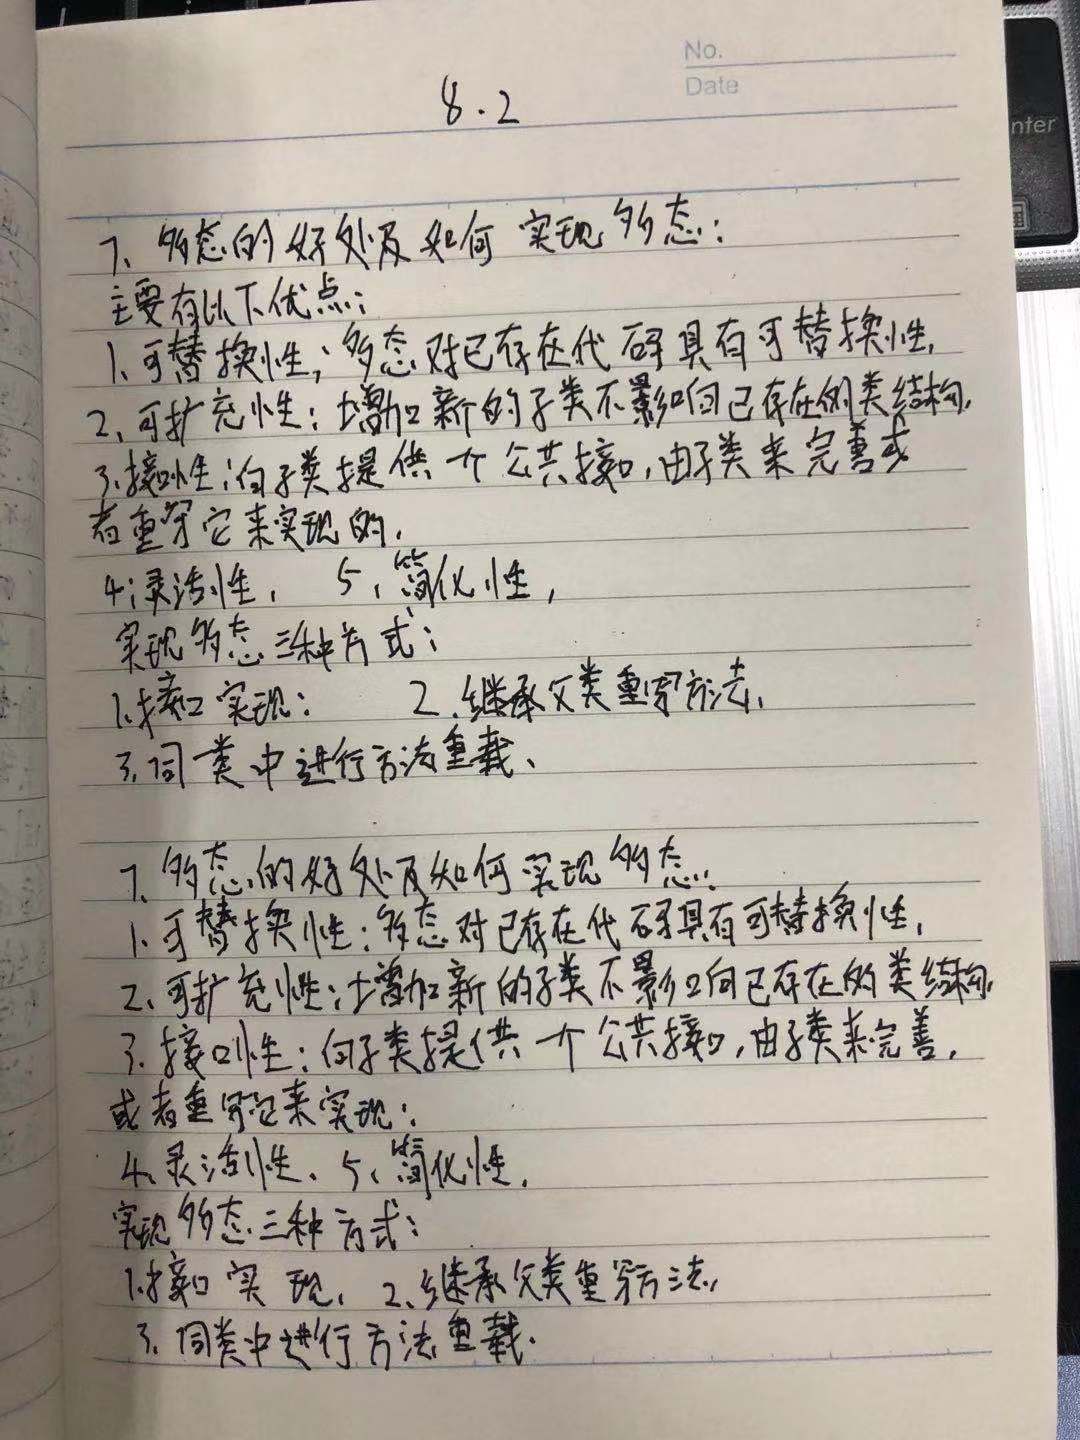 No.
Date
8.2
nter
7、多态的好处及如何实现多态:
主要有以下优点:
1、可替换性:多态对已存在代码具有可替换性,
2、可扩充性:增加新的子类不影响已存在的类结构,
3、接口性:向子类提供一个公共接口,由子类来完善或
者重写它来实现的,
4、灵活性, 5、简化性,
实现多态三种方式:
1、接口实现: 2、继承父类重写方法,
3、同一类中进行方法重载、
7、多态的好处及如何实现多态:
1、可替换性:多态对已存在代码具有可替换性,
2、可扩充性:增加新的子类不影响已存在的类结构,
3、接口性:向子类提供一个公共接口,由子类来完善,
或者重写它来实现:
4、灵活性、5、简化性,
实现多态三种方式:
1、接口实现, 2、继承父类重写方法,
3、同类中进行方法重载、